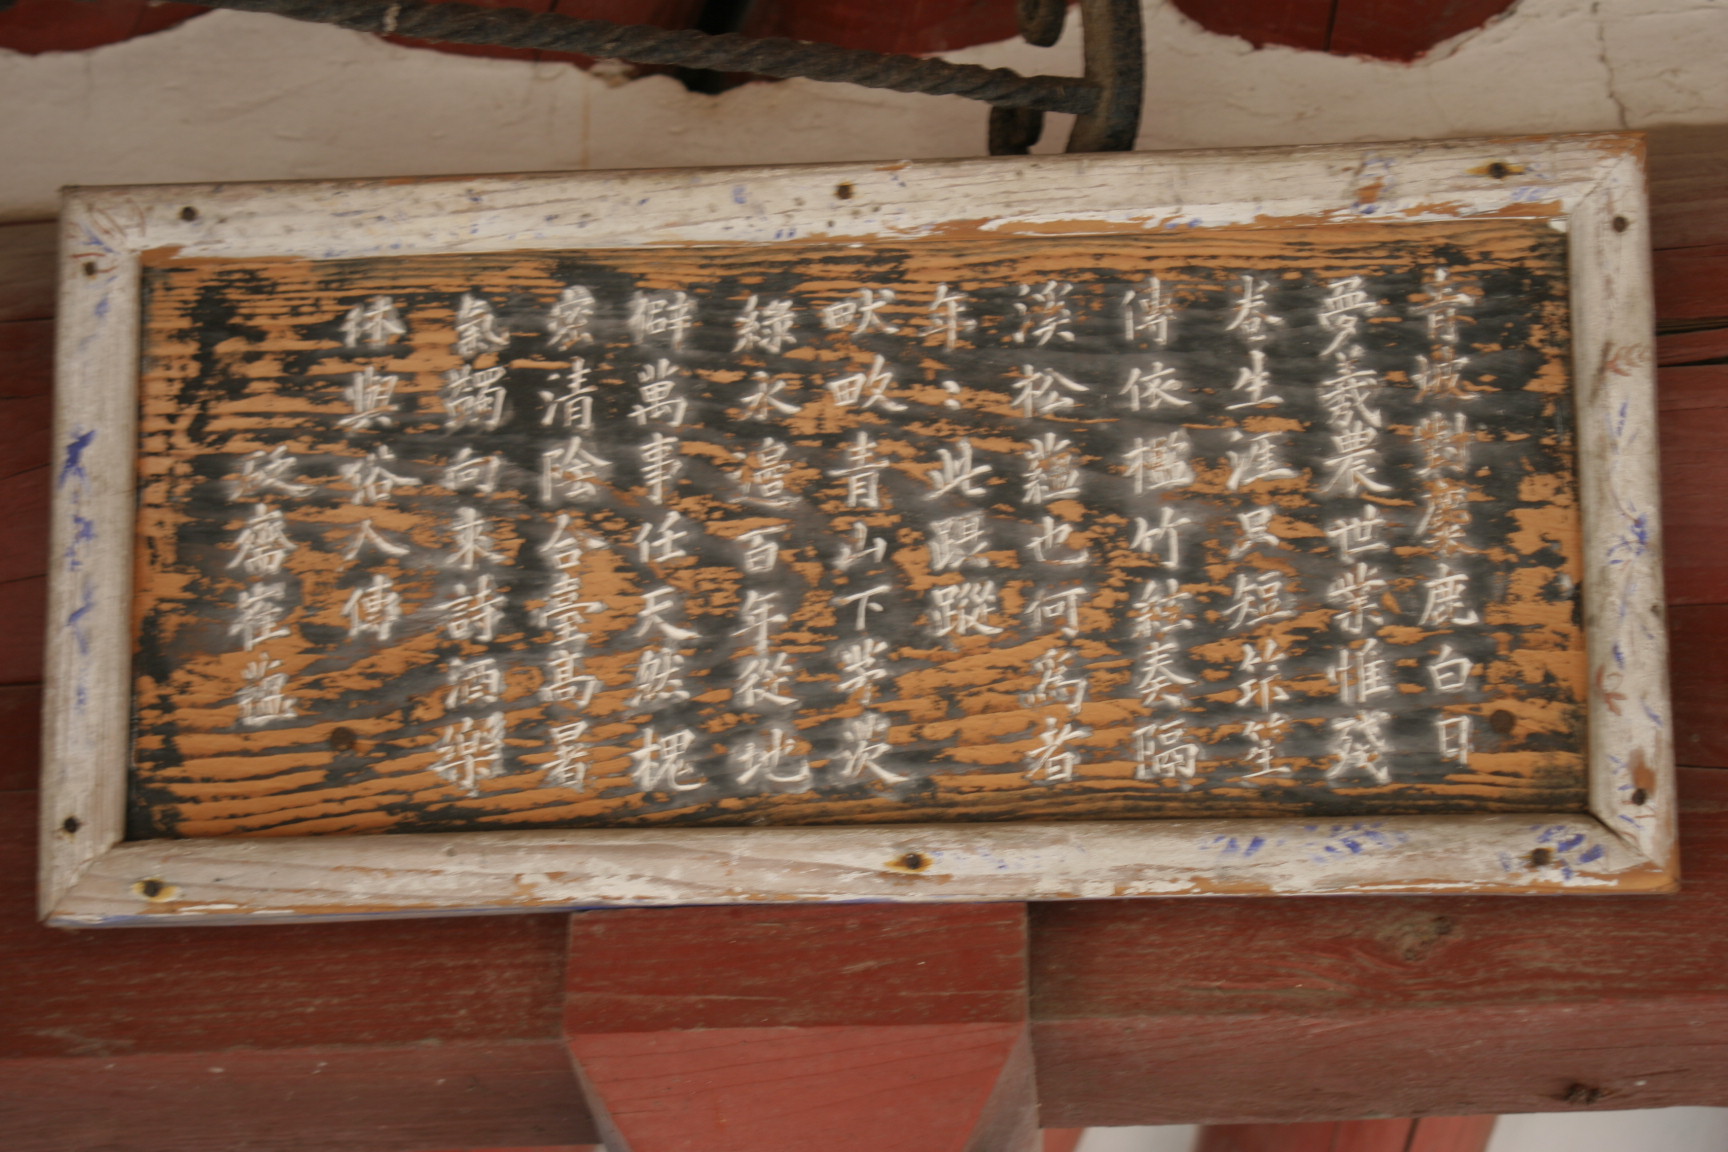 青城對麋鹿白日
夢羲農世業惟殘
卷生涯只短笻笙
傳依檻竹絃奏隔
溪松蘊也何爲者
年〻此躡蹤
畎畝青山下茅茨
綠水邊百年從地
僻萬事任天然槐
密清陰合臺高暑
氣蠲向來詩酒樂
休與俗人傳
泛齋崔蘊